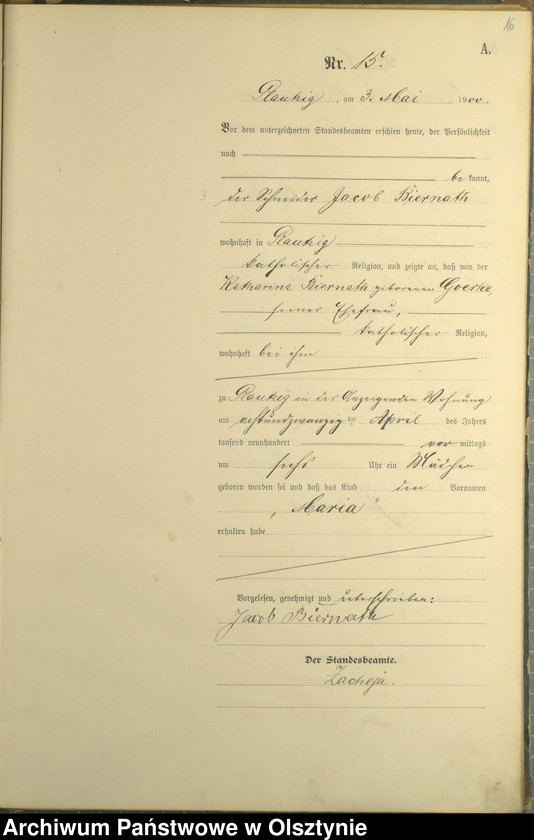 16
A.
Nr. 15.
Plautzig, am 3. Mai 1900.
Vor dem unterzeichneten Standesbeamten erschien heute, der Persönlichkeit
nach
bekannt,
der Schneider Jacob Biernath
wohnhaft in Plautzig
katholischer Religion, und zeigte an, daß von der
Katharina Biernath geborenen Goerke,
seiner Ehefrau,
katholischer Religion,
wohnhaft bei ihm
zu Plautzig in des Anzeigenden Wohnung
am achtundzwanzigten April des Jahres
tausend neunhundert vormittags
um sechs Uhr ein Mädchen
geboren worden sei und daß das Kind den Vornamen
"Maria"
erhalten habe
Vorgelesen, genehmigt und unterschrieben:
Jacob Biernath
Der Standesbeamte.
Zacheja.
Archiwum Państwowe w Olsztynie